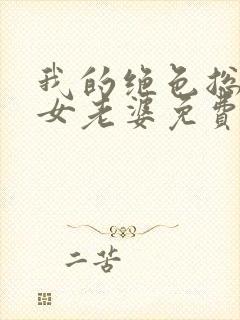 我的绝色总
女老婆免費
二苦